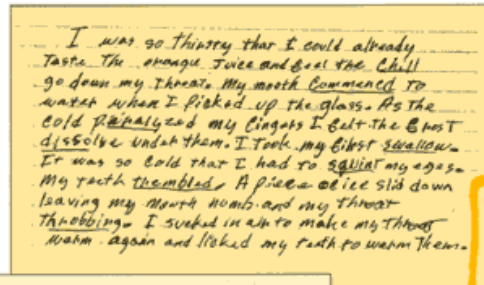 I was so thirsty that I could already
taste the orange juice and feel the chill
go down my throat. My mouth commenced to
water when I picked up the glass. As the
cold paralyzed my fingers I felt the frost
dissolve under them. I took my first swallow.
It was so cold that I had to squint my eyes.
My teeth thembled. A piece of ice slid down
leaving my mouth numb and my throat
throbbing. I sucked in air to make my throat
warm again and licked my teeth to warm them.